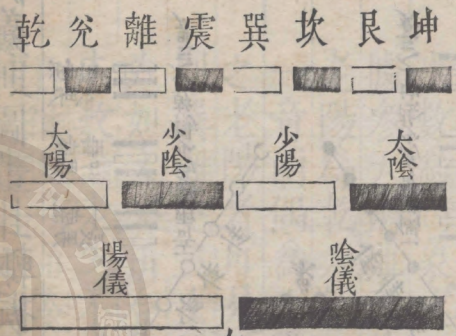 乾兌離震巽坎艮坤
太陽 少陰 少陽 太陰
陽儀 陰儀